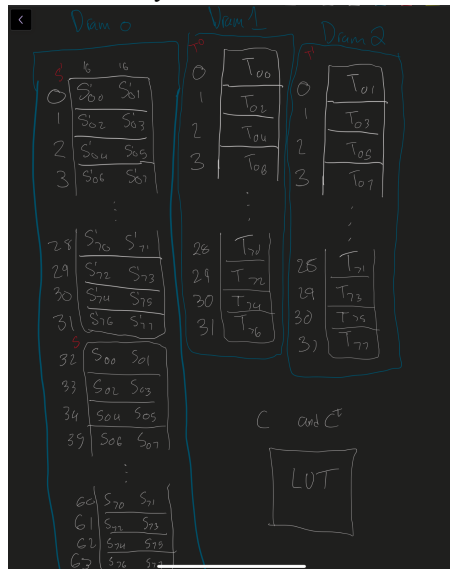 Dram 0
S'
16 16
0 S'00 S'01
1 S'02 S'03
2 S'04 S'05
3 S'06 S'07
28 S'70 S'71
29 S'72 S'73
30 S'74 S'75
31 S'76 S'77
S
32 S00 S01
33 S02 S03
34 S04 S05
35 S06 S07
60 S70 S71
61 S72 S73
62 S74 S75
63 S76 S77
Dram 1
T0
0 T00
1 T02
2 T04
3 T08
28 T70
29 T72
30 T74
31 T76
Dram 2
T1
0 T01
1 T03
2 T05
3 T07
28 T71
29 T73
30 T75
31 T77
C and CT
LUT